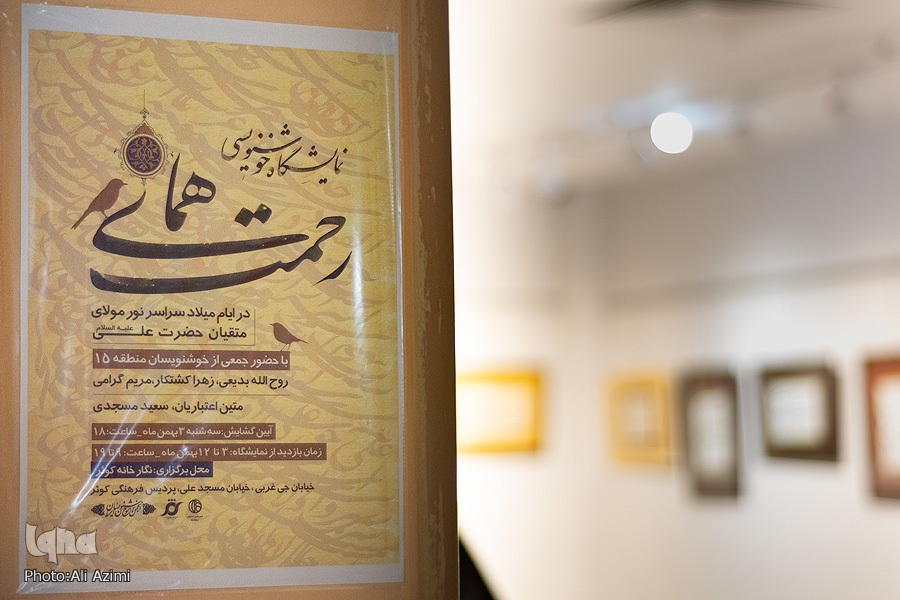 نمایشگاه خوشنویسی
همای رحمت
در ایام میلاد سراسر نور مولای
متقیان حضرت علی علیه السلام
با حضور جمعی از خوشنویسان منطقه ۱۵
روح الله بدیعی، زهرا کشتکار، مریم گرامی
متین اعتباریان، سعید مسجدی
آیین گشایش: سه شنبه ۳ بهمن ماه_ساعت: ۱۸
زمان بازدید از نمایشگاه: ۳ تا ۱۲ بهمن ماه_ساعت: ۹ تا ۱۹
محل برگزاری: نگار خانه کوثر
خیابان جی غربی، خیابان مسجد علی، پردیس فرهنگی کوثر
Iqna
Photo:Ali Azimi